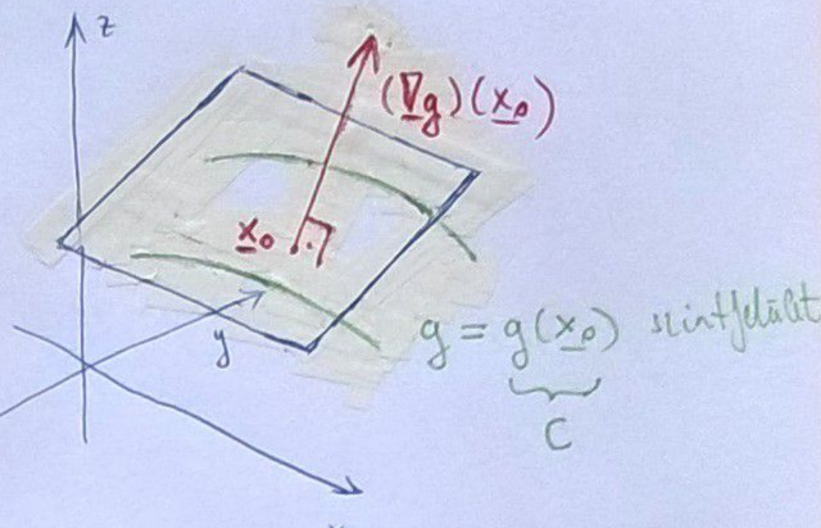 z
(∇g)(x̲₀)
x̲₀
y
g = g(x̲₀) szintfelület
C